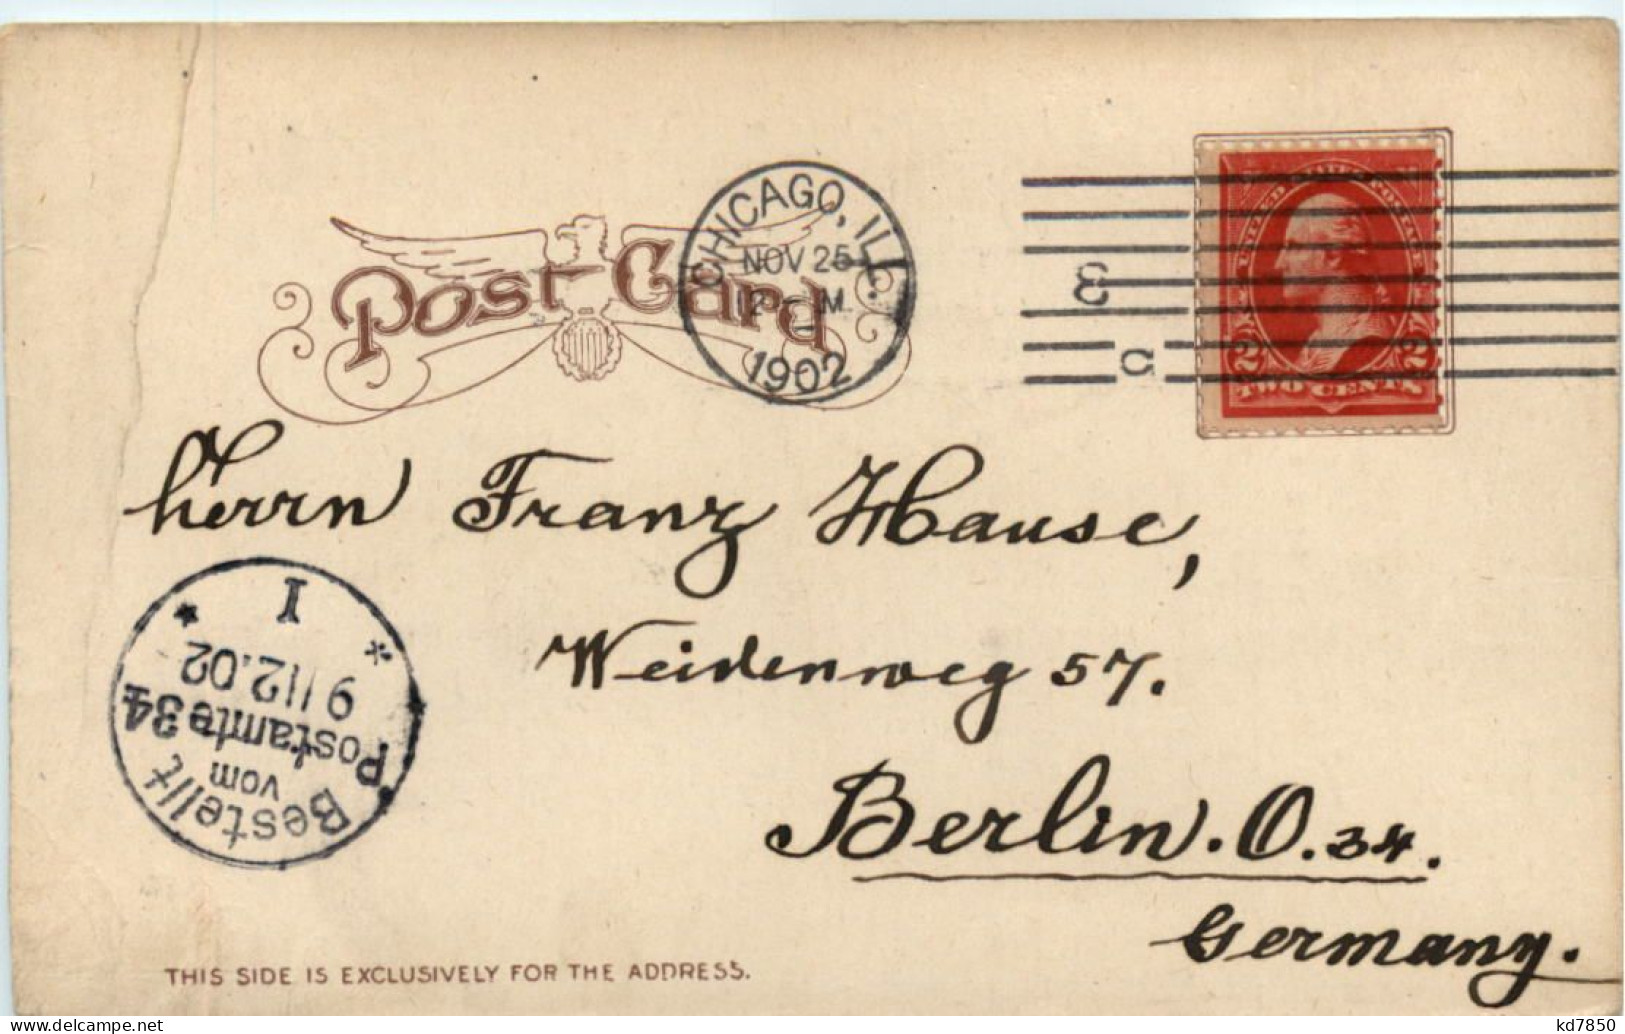 Post Card
CHICAGO, ILL.
NOV 25
12 - M.
1902
UNITED STATES POSTAGE
2 2
TWO CENTS
Herrn Franz Hause,
Weidenweg 57.
Berlin. O. 34.
Germany.
Bestellt
vom
Postamte 34
9/12.02
* I *
THIS SIDE IS EXCLUSIVELY FOR THE ADDRESS.
kd7850